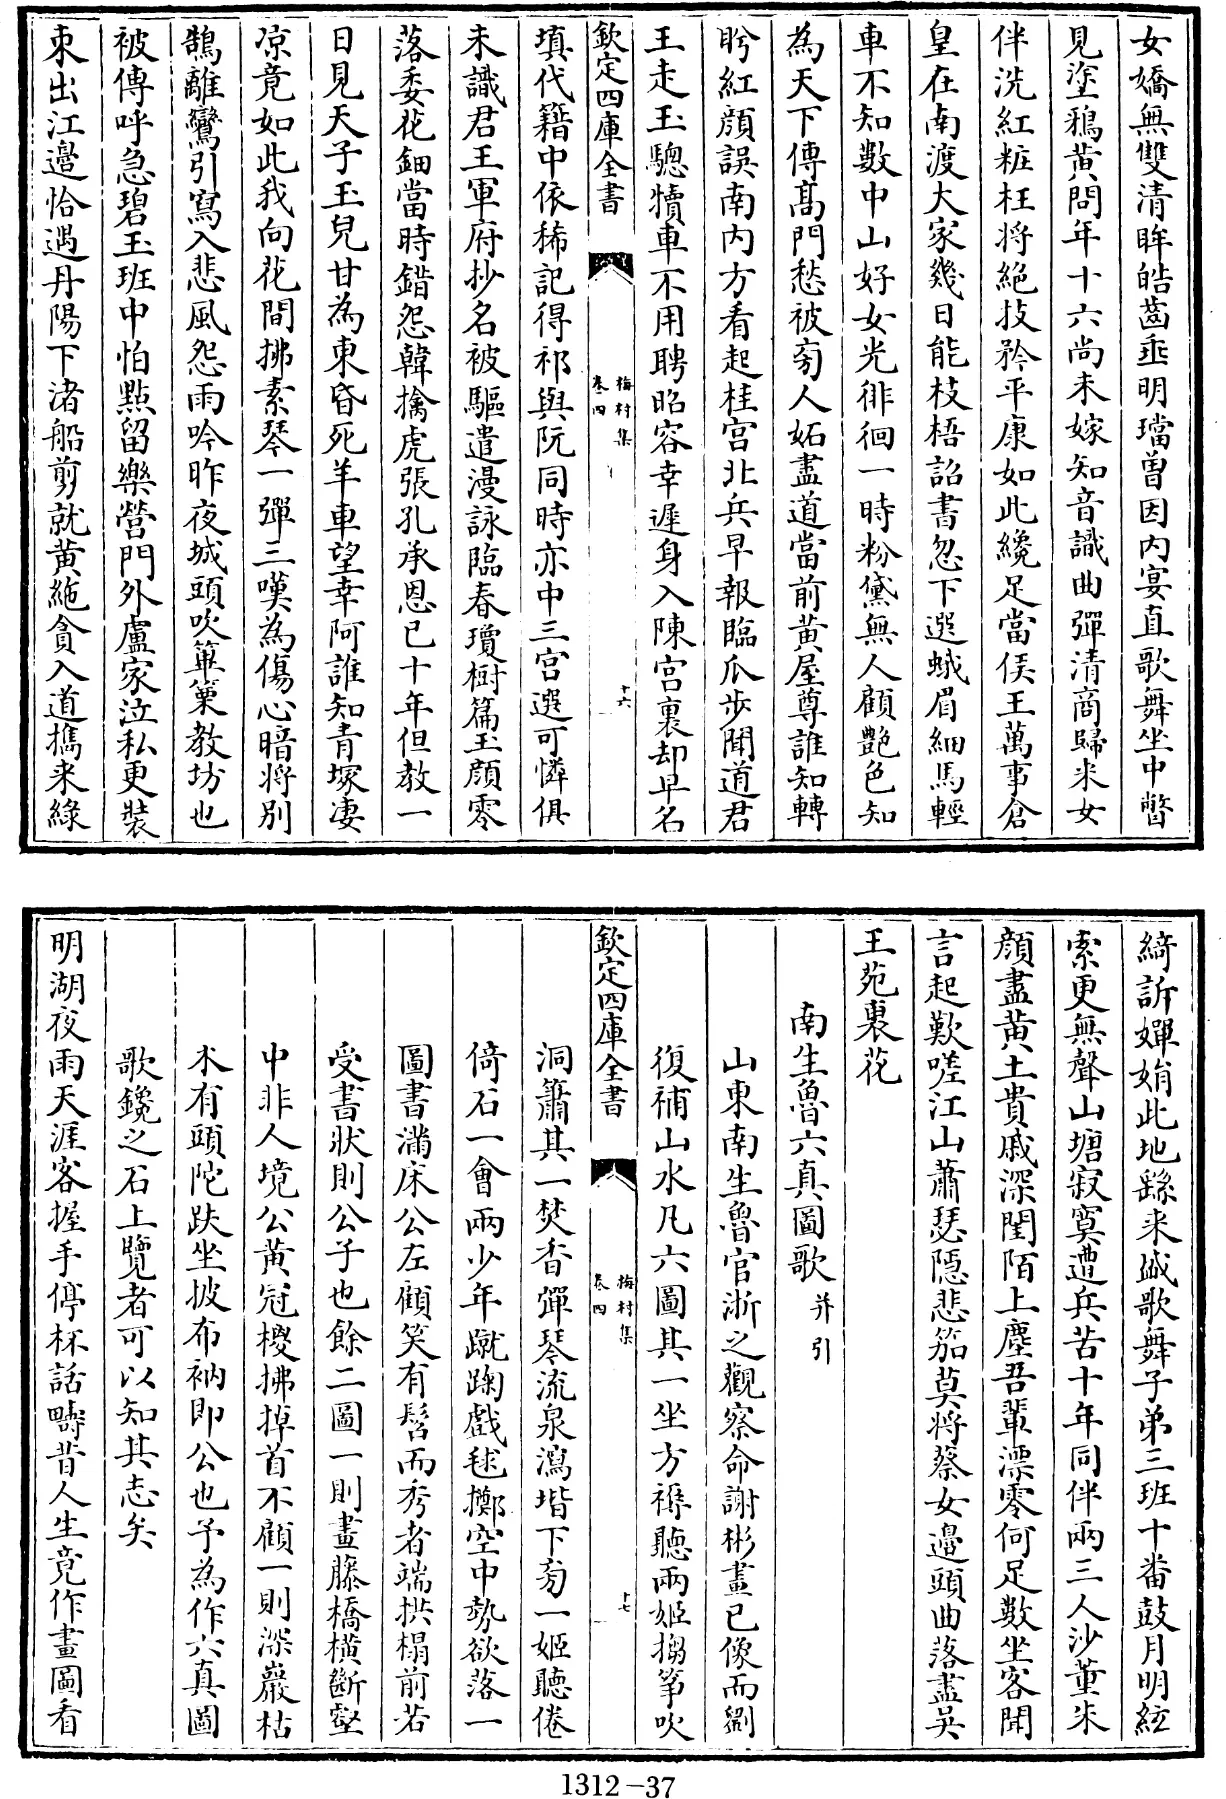 女嬌無雙清眸皓齒垂明璫曽因内宴直歌舞坐中瞥
見塗鵶黄問年十六尚未嫁知音識曲彈清商歸来女
伴洗紅粧枉将絶技矜平康如此纔足當侯王萬事倉
皇在南渡大家幾日能枝梧詔書忽下選蛾眉細馬輕
車不知數中山好女光徘徊一時粉黛無人顧艷色知
為天下傳髙門愁被旁人妬盡道當前黄屋尊誰知轉
盻紅顔誤南内方看起桂宫北兵早報臨瓜步聞道君
王走玉驄犢車不用聘昭容幸遲身入陳宫裏却早名
欽定四庫全書
梅村集
卷四
十六
填代籍中依稀記得祁與阮同時亦中三宫選可憐俱
未識君王軍府抄名被驅遣漫詠臨春瓊樹篇玉顔零
落委花鈿當時錯怨韓擒虎張孔承恩已十年但教一
日見天子玉兒甘為東昏死羊車望幸阿誰知青塚凄
凉竟如此我向花間拂素琴一彈三嘆為傷心暗将别
鵠離鸞引寫入悲風怨雨吟昨夜城頭吹篳篥教坊也
被傳呼急碧玉班中怕點留樂營門外盧家泣私更裝
束出江邉恰遇丹陽下渚船剪就黄絁貪入道攜来緑
綺訴嬋娟此地繇来盛歌舞子弟三班十番鼓月明絃
索更無聲山塘寂寞遭兵苦十年同伴兩三人沙董朱
顔盡黄土貴戚深閨陌上塵吾輩漂零何足數坐客聞
言起歎嗟江山蕭瑟隠悲笳莫将蔡女邉頭曲落盡吴
王苑裏花
南生魯六真圖歌并引
山東南生魯官浙之觀察命謝彬畫已像而劉
復補山水凡六圖其一坐方褥聽兩姬搊箏吹
欽定四庫全書
梅村集
卷四
十七
洞簫其一焚香彈琴流泉瀉堦下旁一姬聽倦
倚石一會兩少年蹴踘戲毬擲空中勢欲落一
圖書滿床公左顧笑有髫而秀者端拱榻前若
受書狀則公子也餘二圖一則畫藤橋横斷壑
中非人境公黄冠椶拂掉首不顧一則深巖枯
木有頭陀趺坐披布衲即公也予為作六真圖
歌鑱之石上覽者可以知其志矣
明湖夜雨天涯客握手停杯話疇昔人生竟作畫圖看
1312-37